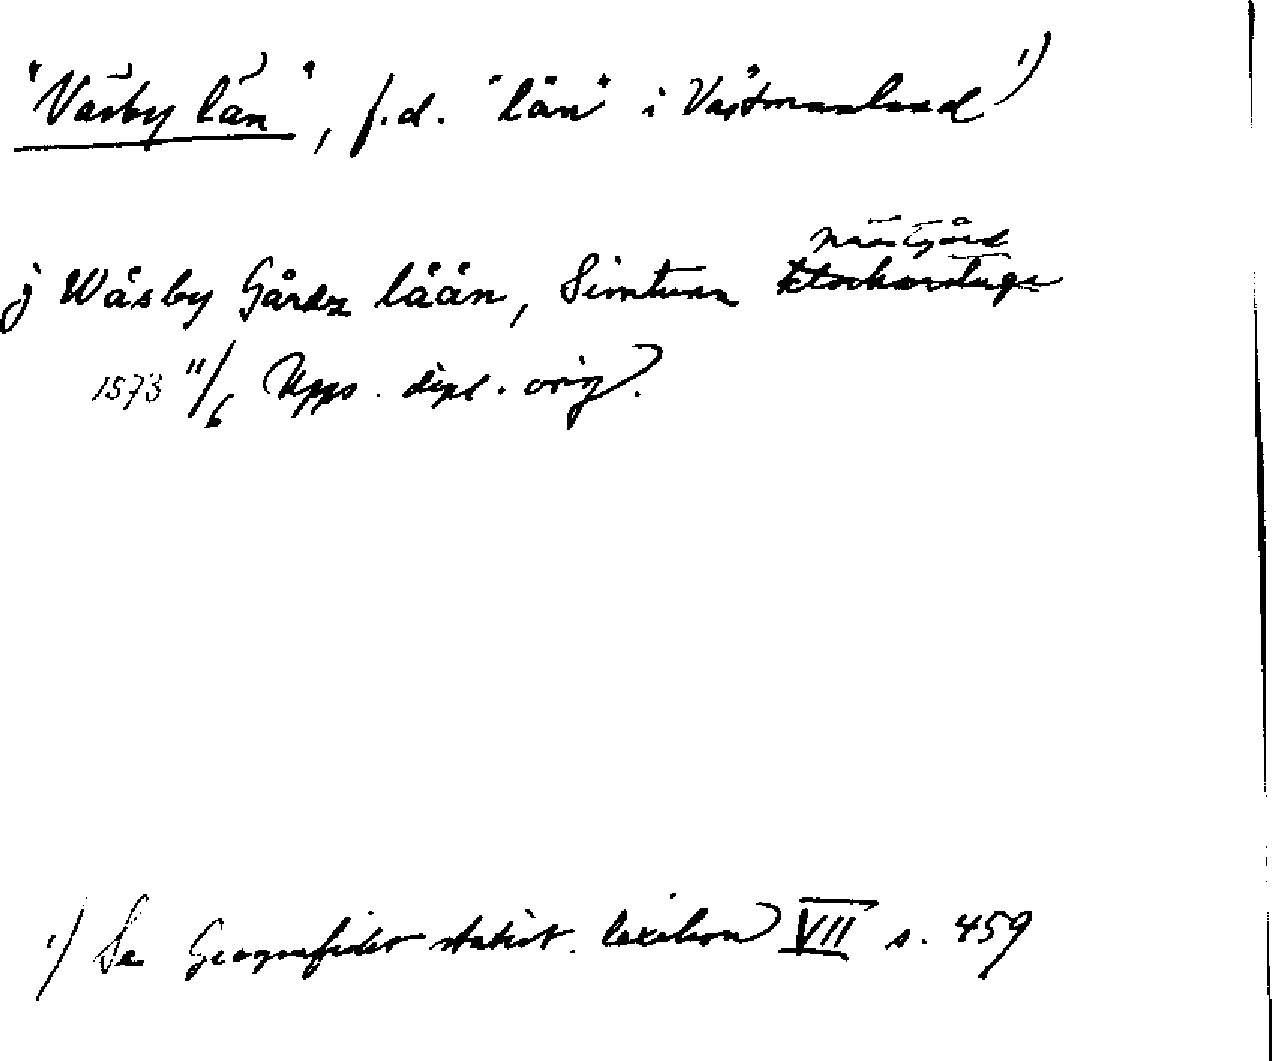 "Väsby län", f.d. "län" i Västmanland 1)
prästgård
j Wäsby Gårdz lään, Simtuna klockarstuga
1573 11/6 Upps. dipl. orig.
1) Se Geografiskt statist. lexikon VII s. 459